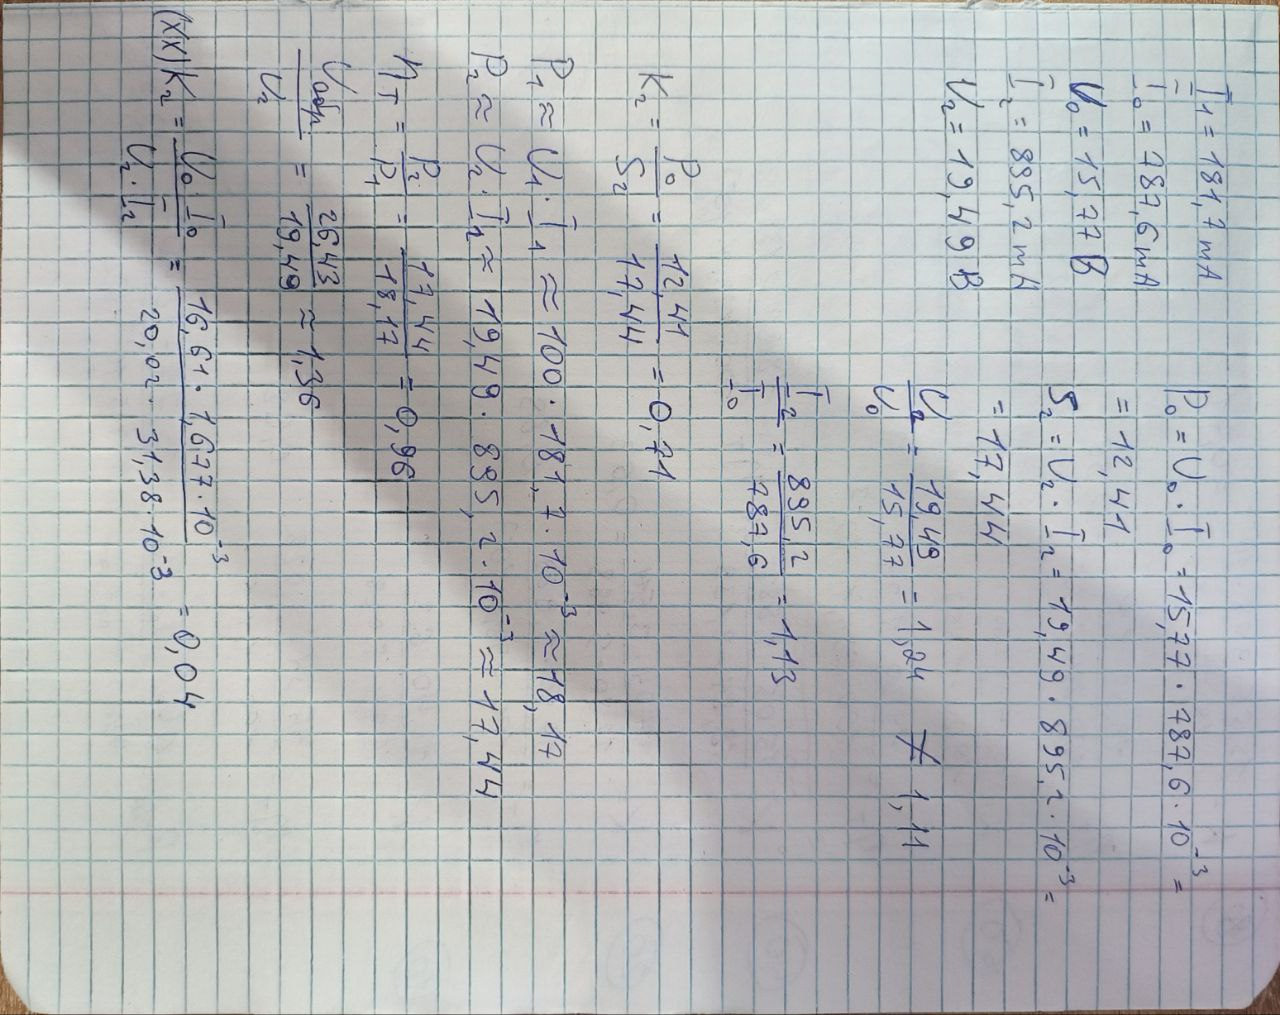 I̅₁ = 181,7 mA
I̅₀ = 787,6 mA
U₀ = 15,77 В
I̅₂ = 895,2 mA
U₂ = 19,49 В
P₀ = U₀ · I̅₀ = 15,77 · 787,6 · 10⁻³ =
= 12,41
S₂ = U₂ · I̅₂ = 19,49 · 895,2 · 10⁻³ =
= 17,44
U₂/U₀ = 19,49/15,77 = 1,24 ≠ 1,11
I̅₂/I̅₀ = 895,2/787,6 = 1,13
K₂ = P₀/S₂ = 12,41/17,44 = 0,71
P₁ ≈ U₁ · I̅₁ ≈ 100 · 181,7 · 10⁻³ ≈ 18,17
P₂ ≈ U₂ · I̅₂ ≈ 19,49 · 895,2 · 10⁻³ ≈ 17,44
η_T = P₂/P₁ = 17,44/18,17 = 0,96
Uобр./U₂ = 26,43/19,49 ≈ 1,36
(XX) K₂ = U₀ · I̅₀/U₂ · I̅₂ = 16,61 · 1,677 · 10⁻³/20,02 · 31,38 · 10⁻³ = 0,04